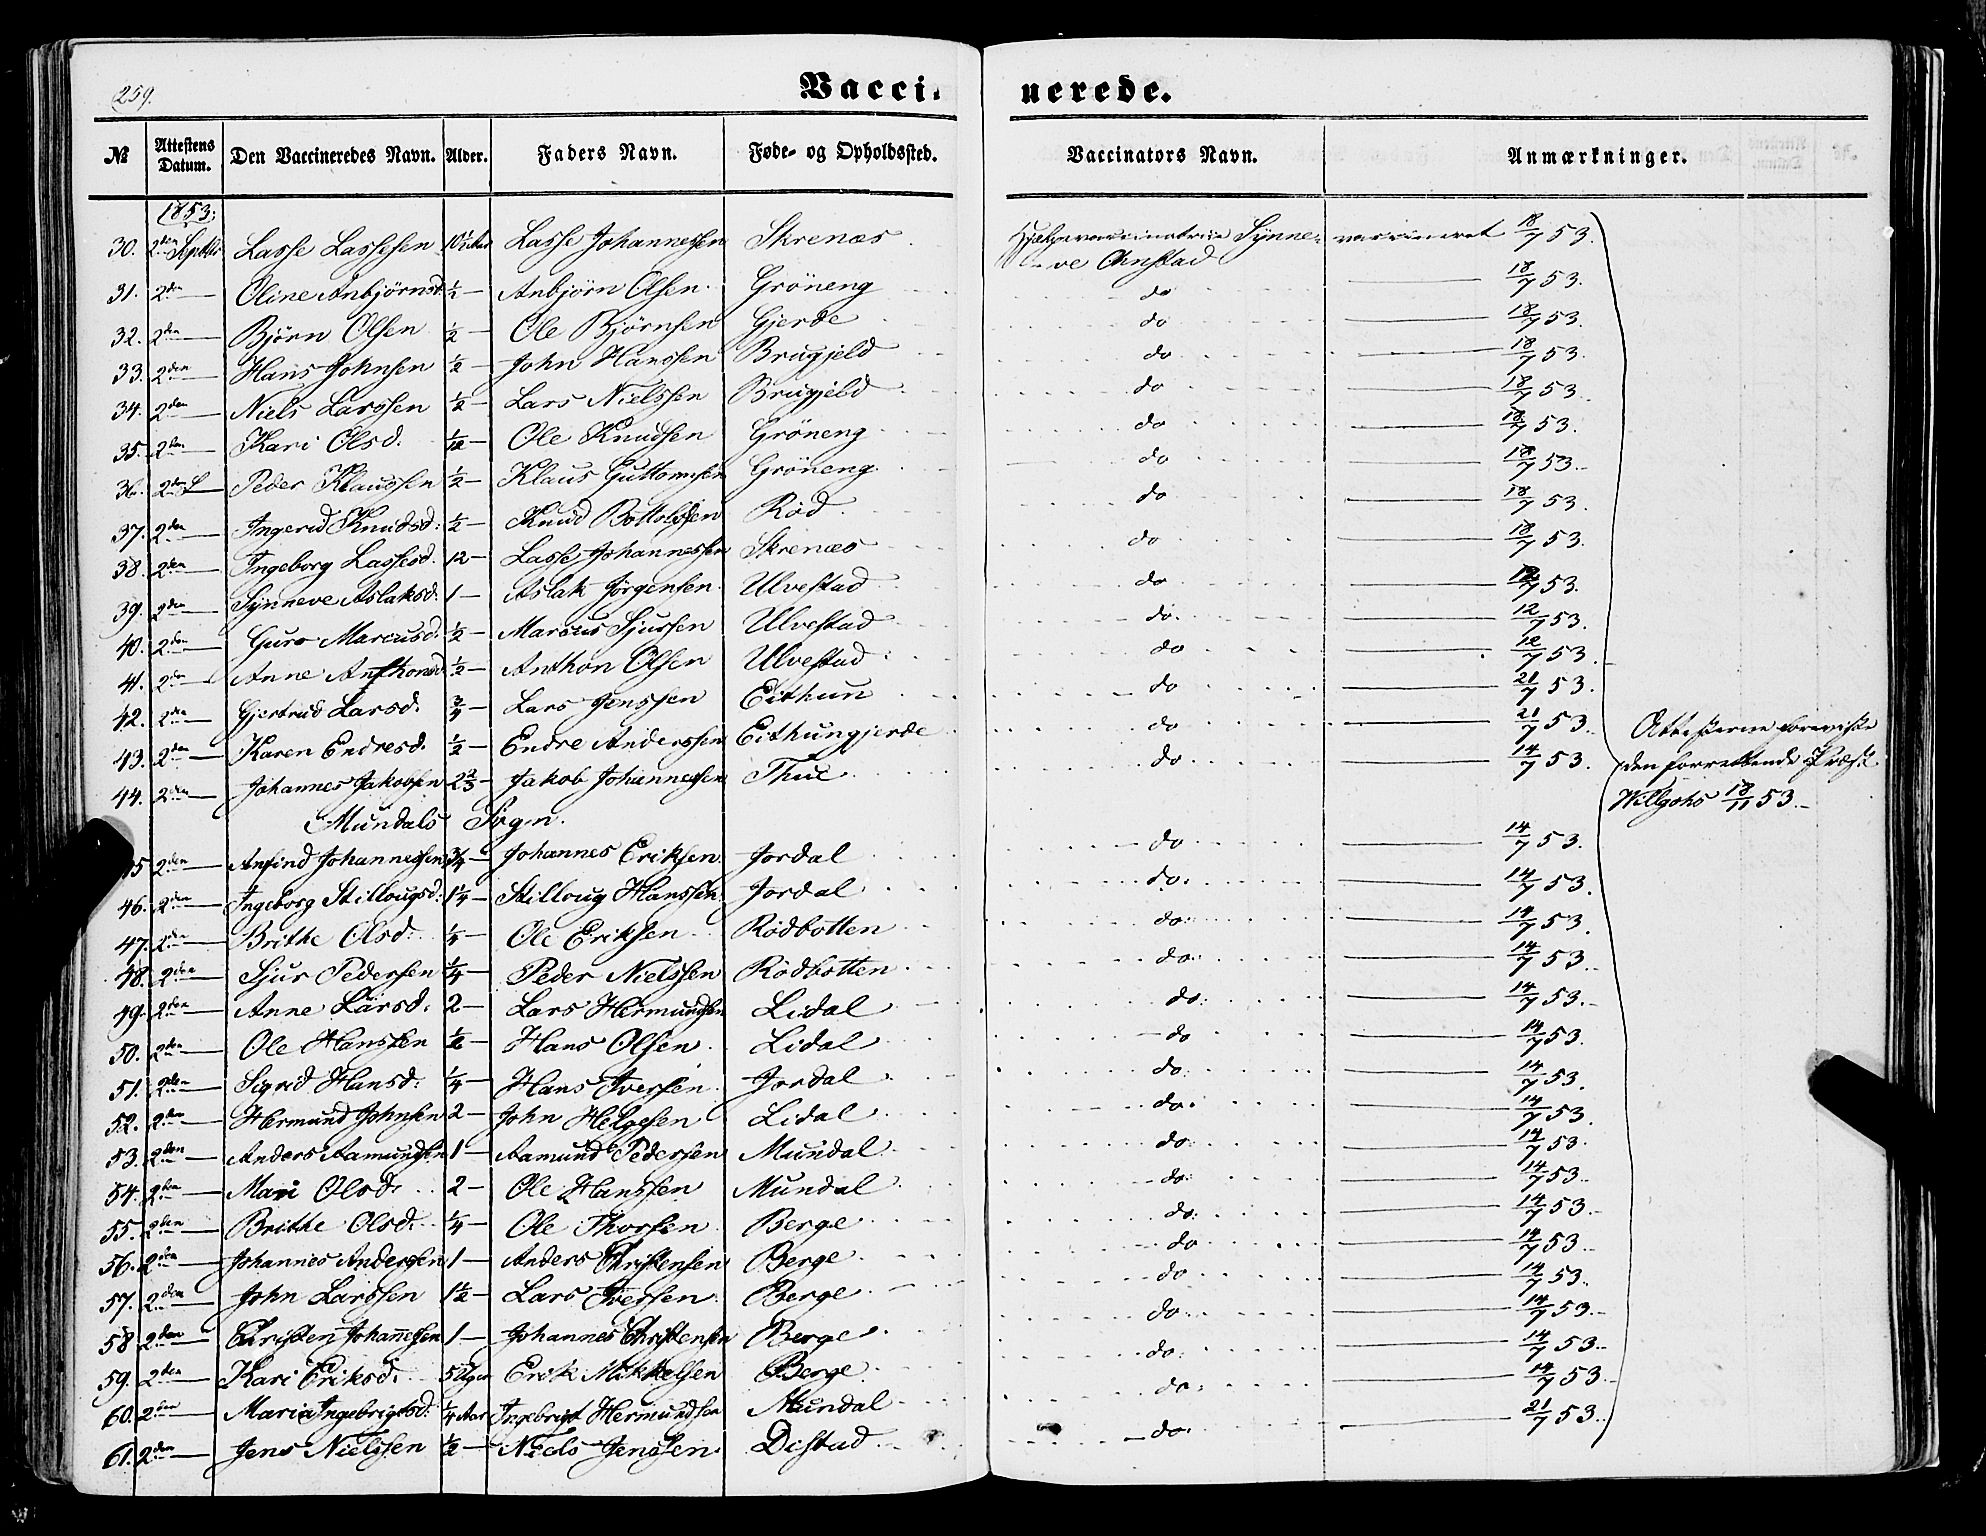 259.
Vaccinerede.
№ | Attestens Datum. | Den Vaccineredes Navn. | Alder. | Faders Navn. | Føde- og Opholdssted. | Vaccinators Navn. | Anmærkninger.
1853:
30. | 2den Septbr | Lasse Lassesen | 10½ Aar | Lasse Johannessen | Skrenæs | Hjelpevaccinatrice Synneve Ølnstad | vaccineret 18/7 53.
31. | 2den — | Oline Anbjørnsd. | ½ — | Anbjørn Olsen | Grøneng | do | — 18/7 53.
32. | 2den — | Bjørn Olsen | ½ — | Ole Bjørnsen | Gjerde | do | — 18/7 53.
33. | 2den — | Hans Johnsen | ½ — | John Hanssen | Brugjeld | do. | — 18/7 53.
34. | 2den — | Niels Larssen | ½ — | Lars Nielssen | Brugjeld | do | — 18/7 53.
35. | 2den — | Kari Olsd. | 1/12 — | Ole Knudsen | Grøneng | do | — 18/7 53.
36. | 2den — | Peder Klaussen | ½ — | Klaus Guttormsen | Grøneng | do | — 18/7 53.
37. | 2den — | Ingerid Knudsd: | ½ — | Knud Bottolfsen | Rød | do | — 18/7 53.
38. | 2den — | Ingeborg Lassesd. | 12 — | Lasse Johannessen | Skrenæs | do | — 18/7 53.
39. | 2den — | Synneve Aslaksd. | 1 — | Aslak Jørgensen | Ulvestad | do | — 12/7 53.
40. | 2den — | Guro Marcusd. | ½ — | Marcus Sjursen | Ulvestad | do. | — 12/7 53.
41. | 2den — | Anne Anthonsd. | ½ — | Anthon Olsen | Ulvestad | do | — 12/7 53.
42. | 2den — | Gjertrud Larsd. | ¾ — | Lars Jenssen | Eithun | do | — 21/7 53.
43. | 2den — | Karen Endresd. | ½ — | Endre Anderssen | Eithungjerde | do | — 21/7 53.
44. | 2den — | Johannes Jakobsen | 2⅔ — | Jakob Johannessen | Thue | do | — 14/7 53.
Attesterne foreviste
den forrettende Præst
Willgohs 18/11 53.
Mundals Sogn.
45 | 2den — | Anfind Johannessen | ¾ — | Johannes Eriksen | Jordal | do | 14/7 53.
46. | 2den — | Ingeborg Stillougsd: | 1¼ — | Stilloug Hanssen | Jordal | do. | — 14/7 53.
47. | 2den — | Brithe Olsd. | ¼ — | Ole Eriksen | Rødbotten | do. | — 14/7 53.
48. | 2den — | Sjur Pedersen | ¼ — | Peder Nielssen | Rødbotten | do. | — 14/7 53.
49. | 2den — | Anne Larsd. | 2 — | Lars Hermundsen | Lidal | do. | — 14/7 53.
50. | 2den — | Ole Hanssen | ½ — | Hans Olsen | Lidal | do | — 14/7 53.
51. | 2den — | Sigrid Hansd. | ¼ — | Hans Iversen | Jordal | do. | — 14/7 53.
52. | 2den — | Hermund Johnsen | 2 — | John Helgesen | Lidal | do. | — 14/7 53.
53. | 2den — | Anders Aamundsen | 1 — | Aamund Pedersen | Mundal | do. | — 14/7 53.
54. | 2den — | Mari Olsd. | 2 — | Ole Hanssen | Mundal | do. | — 14/7 53.
55. | 2den — | Brithe Olsd. | ¼ — | Ole Thorsen | Berge | do. | — 14/7 53.
56. | 2den — | Johannes Andersen | 1 — | Anders Christensen | Berge | do | — 14/7 53.
57. | 2den — | John Larssen | 1½ — | Lars Iversen | Berge | do | — 14/7 53.
58 | 2den — | Christen Johannesen | 1 — | Johannes Christensen | Berge | do. | — 14/7 53.
59. | 2den — | Kari Eriksd. | 5 Uger | Erik Mikkelsen | Berge | do. | — 14/7 53.
60. | 2den — | Maria Ingebrigtsd. | ¼ Aar | Ingebrigt Hermundsen | Mundal | do. | — 14/7 53.
61. | 2den — | Jens Nielssen | ½ — | Niels Jenssen | Distad | do. | — 21/7 53.